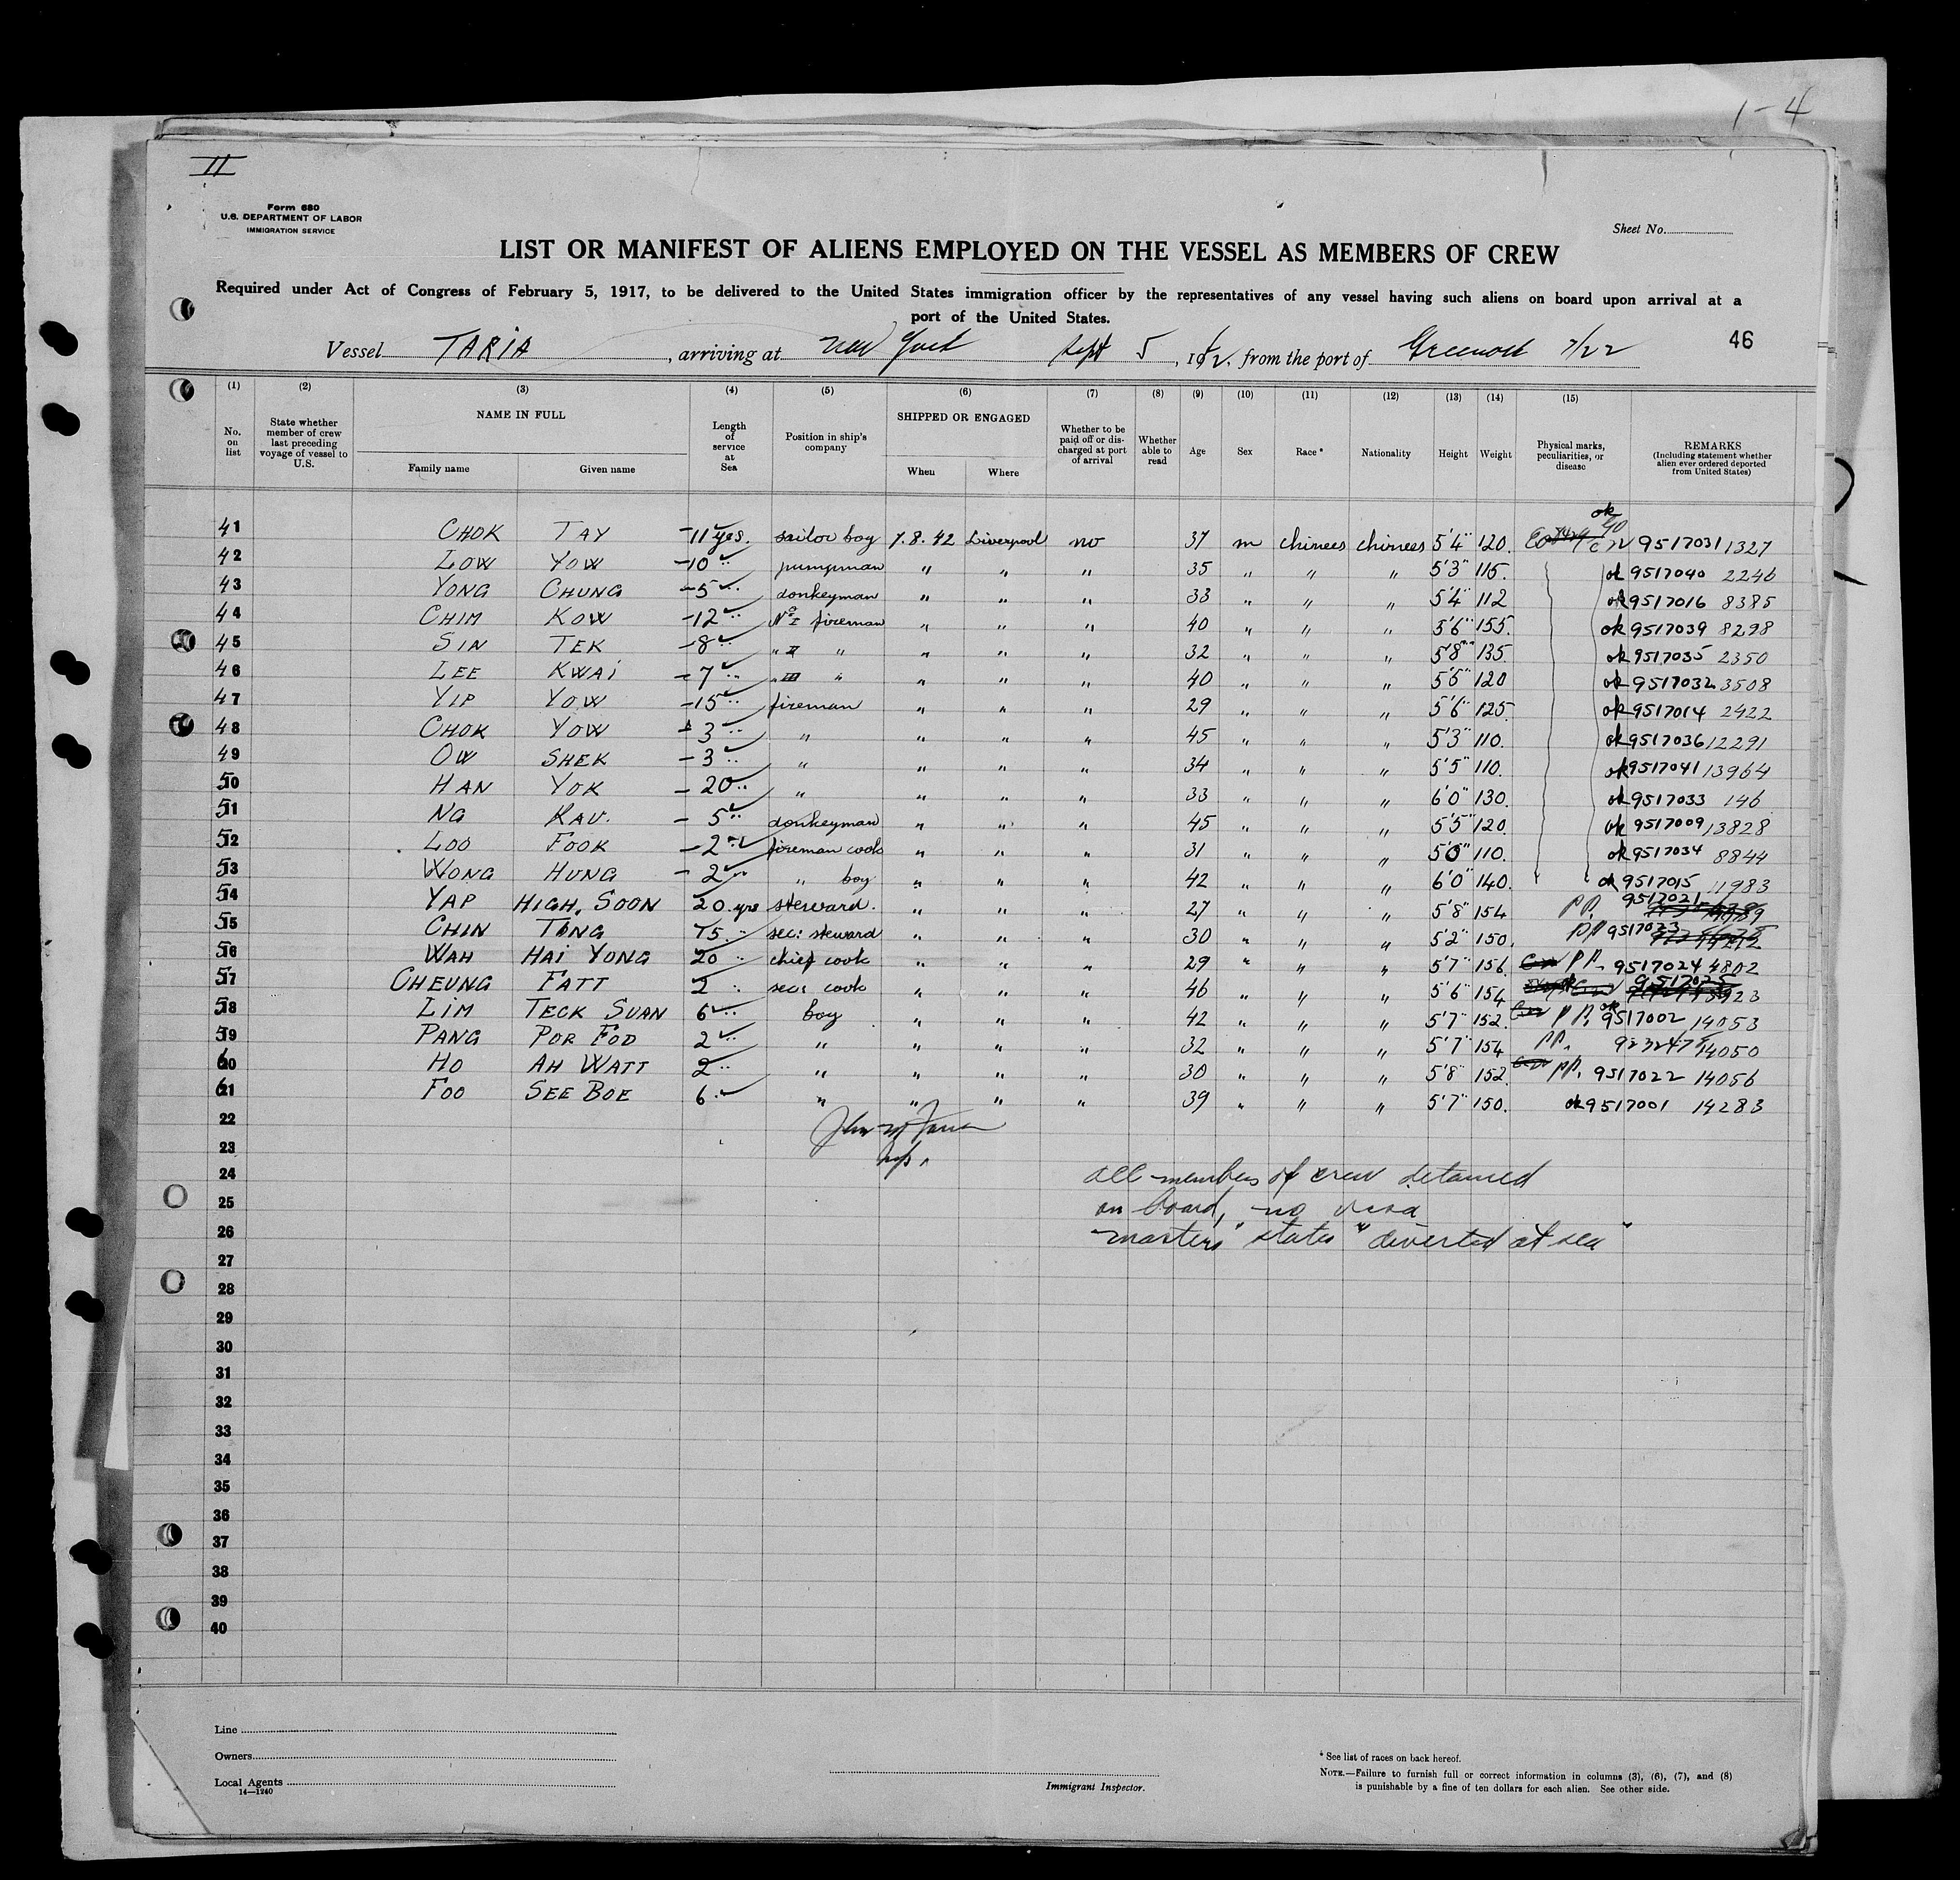 1-4
II
Form 680
U.S. DEPARTMENT OF LABOR
IMMIGRATION SERVICE
Sheet No.
LIST OR MANIFEST OF ALIENS EMPLOYED ON THE VESSEL AS MEMBERS OF CREW
Required under Act of Congress of February 5, 1917, to be delivered to the United States immigration officer by the representatives of any vessel having such aliens on board upon arrival at a
port of the United States.
46
Vessel TARIA, arriving at New York Sept 5, 1942, from the port of Greenock 7/22
(1) (2) (3) (4) (5) (6) (7) (8) (9) (10) (11) (12) (13) (14) (15)
No. on list
State whether member of crew last preceding voyage of vessel to U.S.
NAME IN FULL
Family name Given name
Length of service at Sea
Position in ship's company
SHIPPED OR ENGAGED
When Where
Whether to be paid off or discharged at port of arrival
Whether able to read
Age Sex Race* Nationality Height Weight
Physical marks, peculiarities, or disease
REMARKS
(Including statement whether alien ever ordered deported from United States)
41 CHOK TAY -11 yrs. sailor boy 7.8.42 Liverpool no 37 m chinees chinees 5'4" 120. ok 9517031 1327
42 LOW YOW -10 " pumpman " " " 35 " " " 5'3" 115. ok 9517040 2246
43 YONG CHUNG -5 " donkeyman " " " 33 " " " 5'4" 112 ok 9517016 8385
44 CHIM KOW -12 " No I fireman " " " 40 " " " 5'6" 155. ok 9517039 8298
45 SIN TEK -8 " " II " " " " 32 " " " 5'8" 135. ok 9517035 2350
46 LEE KWAI -7 " " III " " " " 40 " " " 5'5" 120 ok 9517032 3508
47 YIP YOW -15 " fireman " " " 29 " " " 5'6" 125 ok 9517014 2422
48 CHOK YOW -3 " " " " " 45 " " " 5'3" 110. ok 9517036 12291
49 OW SHEK -3 " " " " " 34 " " " 5'5" 110. ok 9517041 13964
50 HAN YOK -20 " " " " " 33 " " " 6'0" 130. ok 9517033 146
51 NG KAU. -5 " donkeyman " " " 45 " " " 5'5" 120. ok 9517009 13828
52 LOO FOOK -2 " fireman cook " " " 31 " " " 5'0" 110. ok 9517034 8844
53 WONG HUNG -2 " " boy " " " 42 " " " 6'0" 140. ok 9517015 11983
54 YAP HIGH, SOON 20 yrs steward. " " " 27 " " " 5'8" 154 PP. 9517021
55 CHIN TONG 15 " sec: steward " " " 30 " " " 5'2" 150. PP 9517023
56 WAH HAI YONG 20 " chief cook " " " 29 " " " 5'7" 156. PP. 9517024 4802
57 CHEUNG FATT 2 " sec: cook " " " 46 " " " 5'6" 154 9517025
58 LIM TECK SUAN 6 " boy " " " 42 " " " 5'7" 152. PP. ok 9517002 14053
59 PANG POR FOD 2 " " " " " 32 " " " 5'7" 154 PP. 14050
60 HO AH WATT 2 " " " " " 30 " " " 5'8" 152. PP. 9517022 14056
61 FOO SEE BOE 6 " " " " " 39 " " " 5'7" 150. ok 9517001 14283
22
23
24 all members of crew detained
25 on board, no visa
26 masters states "diverted at sea"
27
28
29
30
31
32
33
34
35
36
37
38
39
40
Line
Owners
Local Agents
14—1240
Immigrant Inspector.
* See list of races on back hereof.
NOTE.—Failure to furnish full or correct information in columns (3), (6), (7), and (8)
is punishable by a fine of ten dollars for each alien. See other side.